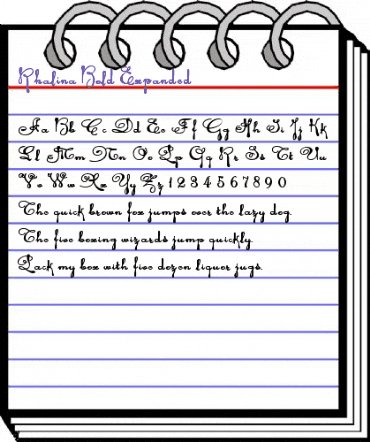 Rhalina Bold Expanded
Aa Bb Cc Dd Ee Ff Gg Hh Ii Jj Kk
Ll Mm Nn Oo Pp Qq Rr Ss Tt Uu
Vv Ww Xx Yy Zz 1 2 3 4 5 6 7 8 9 0
The quick brown fox jumps over the lazy dog.
The five boxing wizards jump quickly.
Pack my box with five dozen liquor jugs.